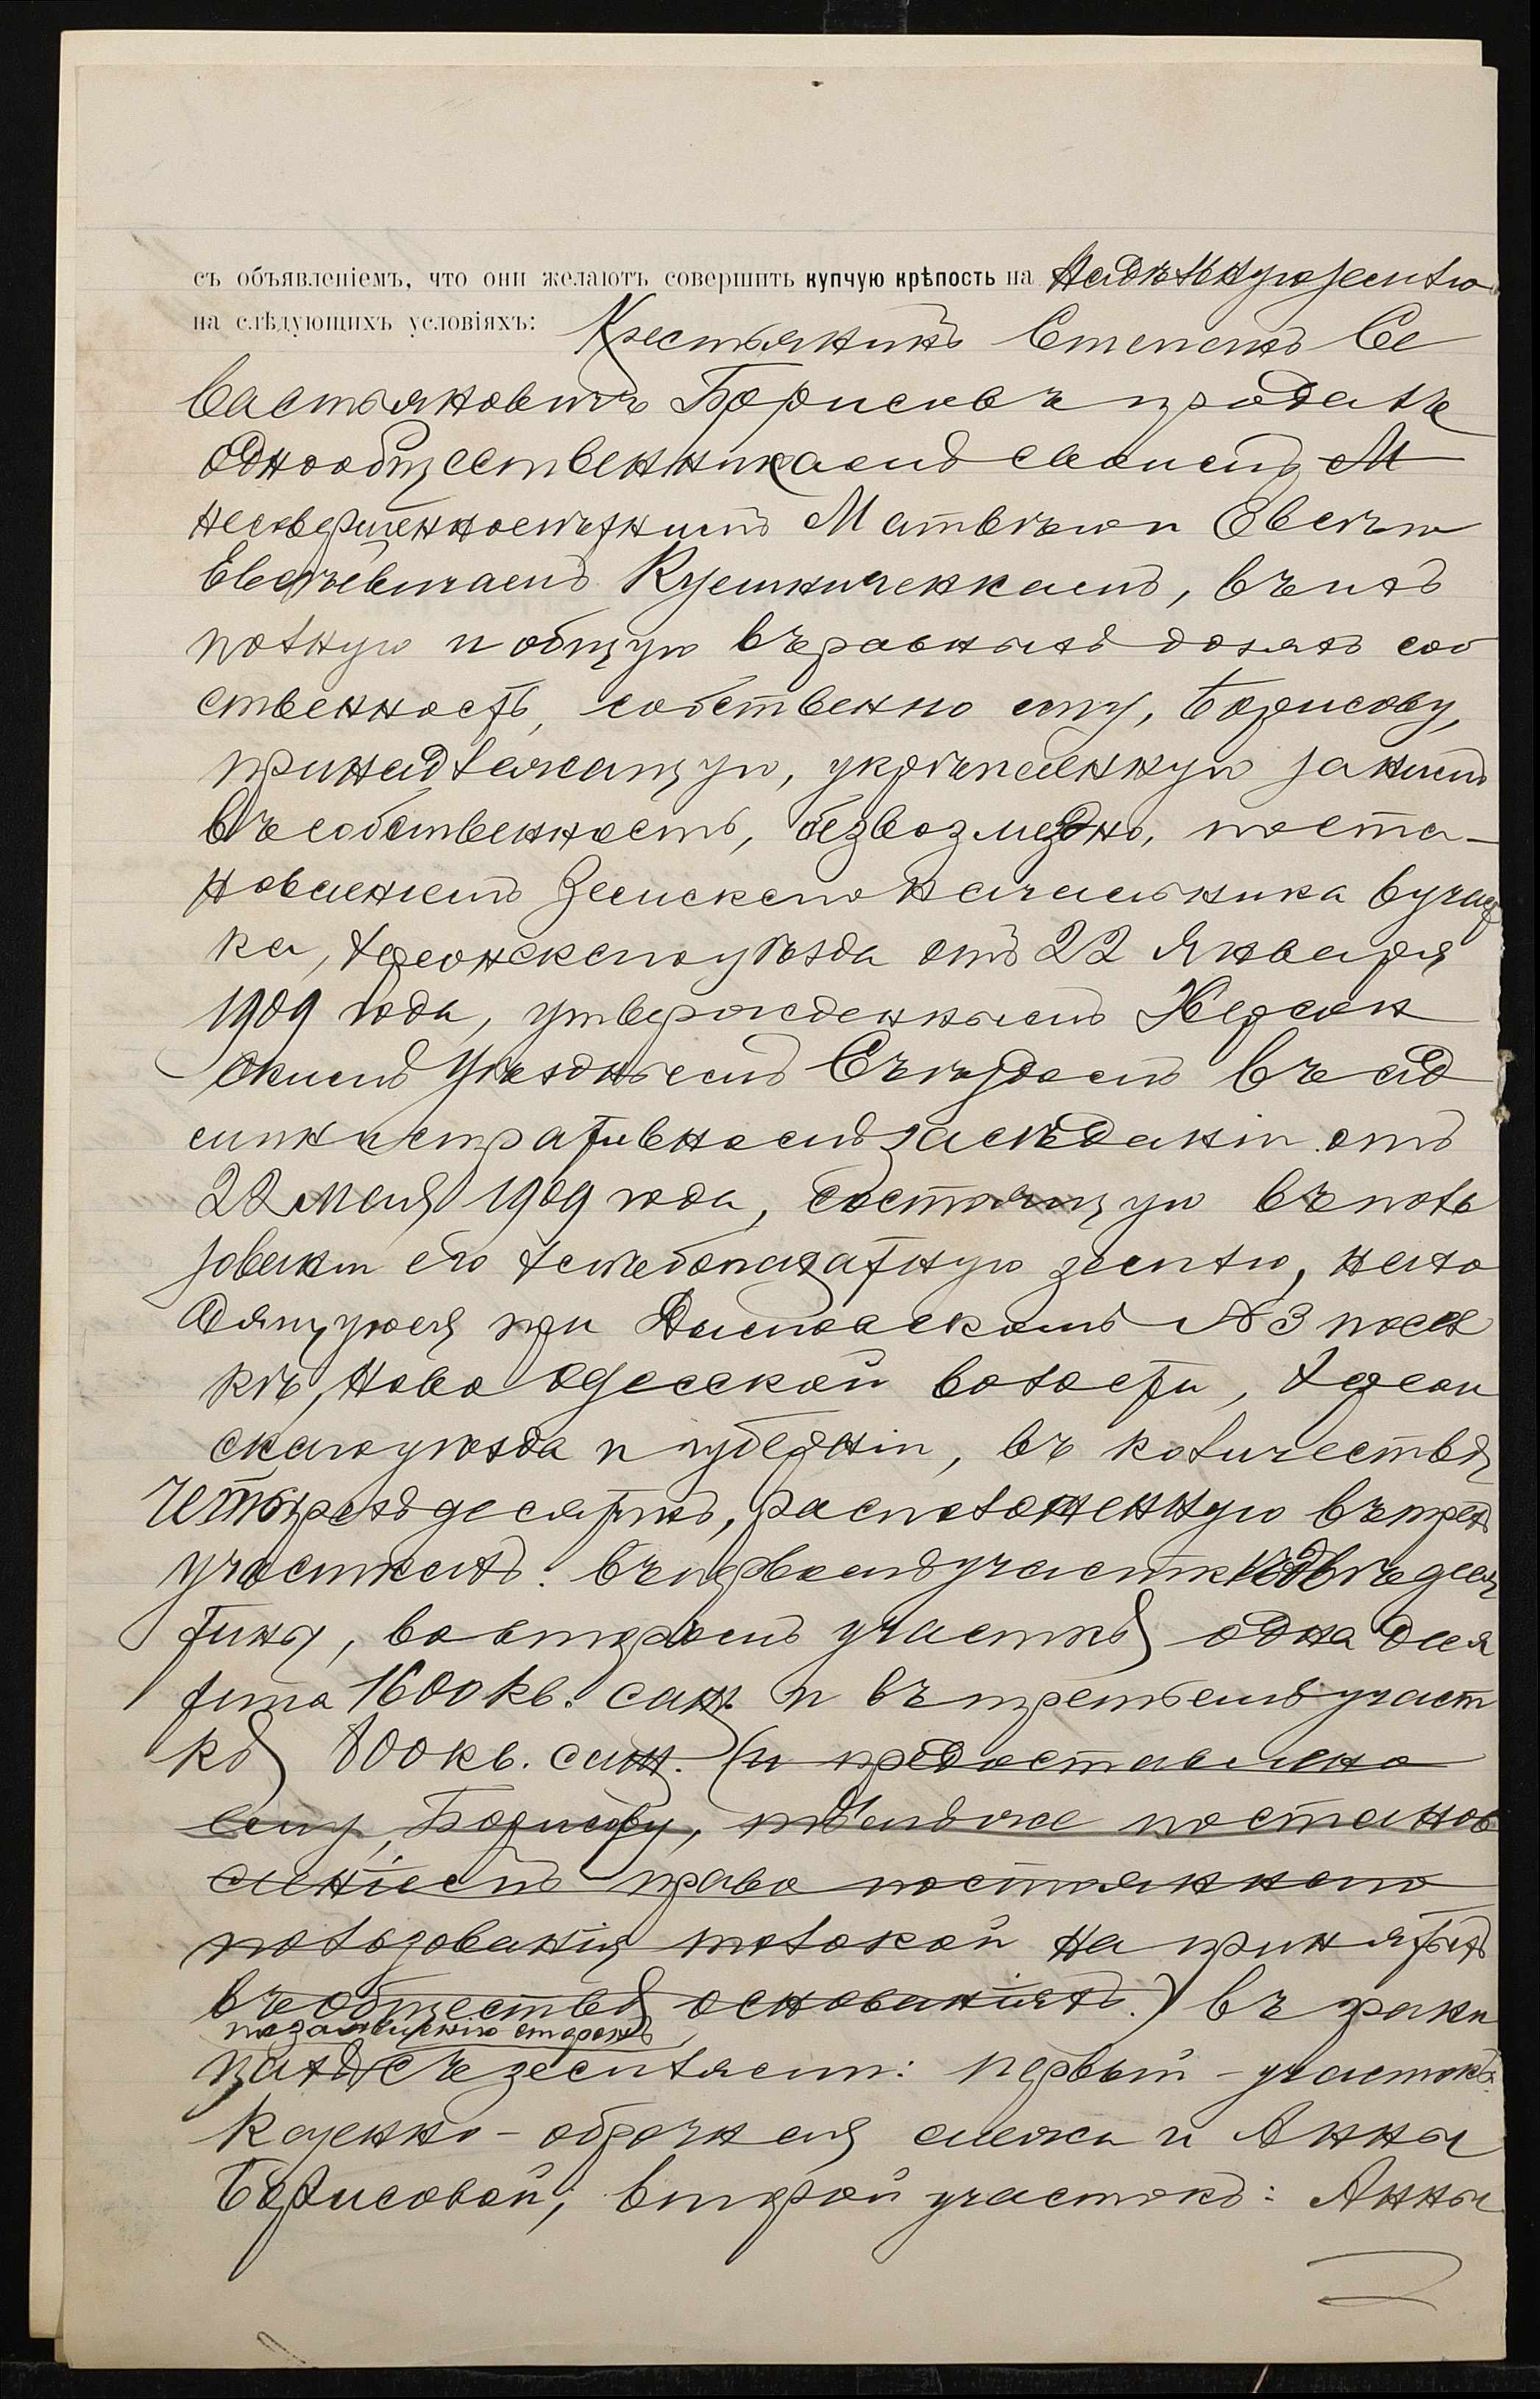 съ объявленіемъ, что они желаютъ совершить купчую крѣпость на Надѣльную землю
на слѣдующихъ условіяхъ: Крестьянинъ Степанъ Се
вастьяновичъ Борисовъ продалъ
однообщественникамъ своимъ М
несовершеннолѣтнимъ Матвѣю и Евсѣю
Евсѣевичамъ Кушниченкамъ, въ ихъ
полную и общую въ равныхъ доляхъ соб
ственность, собственно ему, Борисову,
принадлежащую, укрѣпленную за нимъ
въ собственность, безвозмездно, поста-
новленіемъ Земскаго Начальника 6 участ
ка, Херсонскаго уѣзда отъ 22 Января
1909 года, утвержденнымъ Херсон
скимъ Уѣзднымъ Съѣздомъ въ ад
министративномъ засѣданіи отъ
22 мая 1909 года, состоящую въ поль
зованіи его хлѣбопахатную землю, нахо
дящуюся при № 3 посел
кѣ, Ново Одесской волости, Херсон
скаго уѣзда и губерніи, въ количествѣ
четырехъ десятинъ, расположенную въ трехъ
участкахъ: въ первомъ участкѣ двѣ деся
тины, во второмъ участкѣ одна деся
тина 1600 кв. саж. и въ третьемъ участ
кѣ 800 кв. саж. (и предоставлено
ему, Борисову, тѣмъ же постанов
леніемъ право постояннаго
пользованія толокой на принятыхъ
въ обществѣ основаніяхъ.) въ грани
по заявленію сторонъ
цахъ съ землями: первый - участокъ
Казенно - оброчная смежн и Анны
Борисовой; второй участокъ: Анны